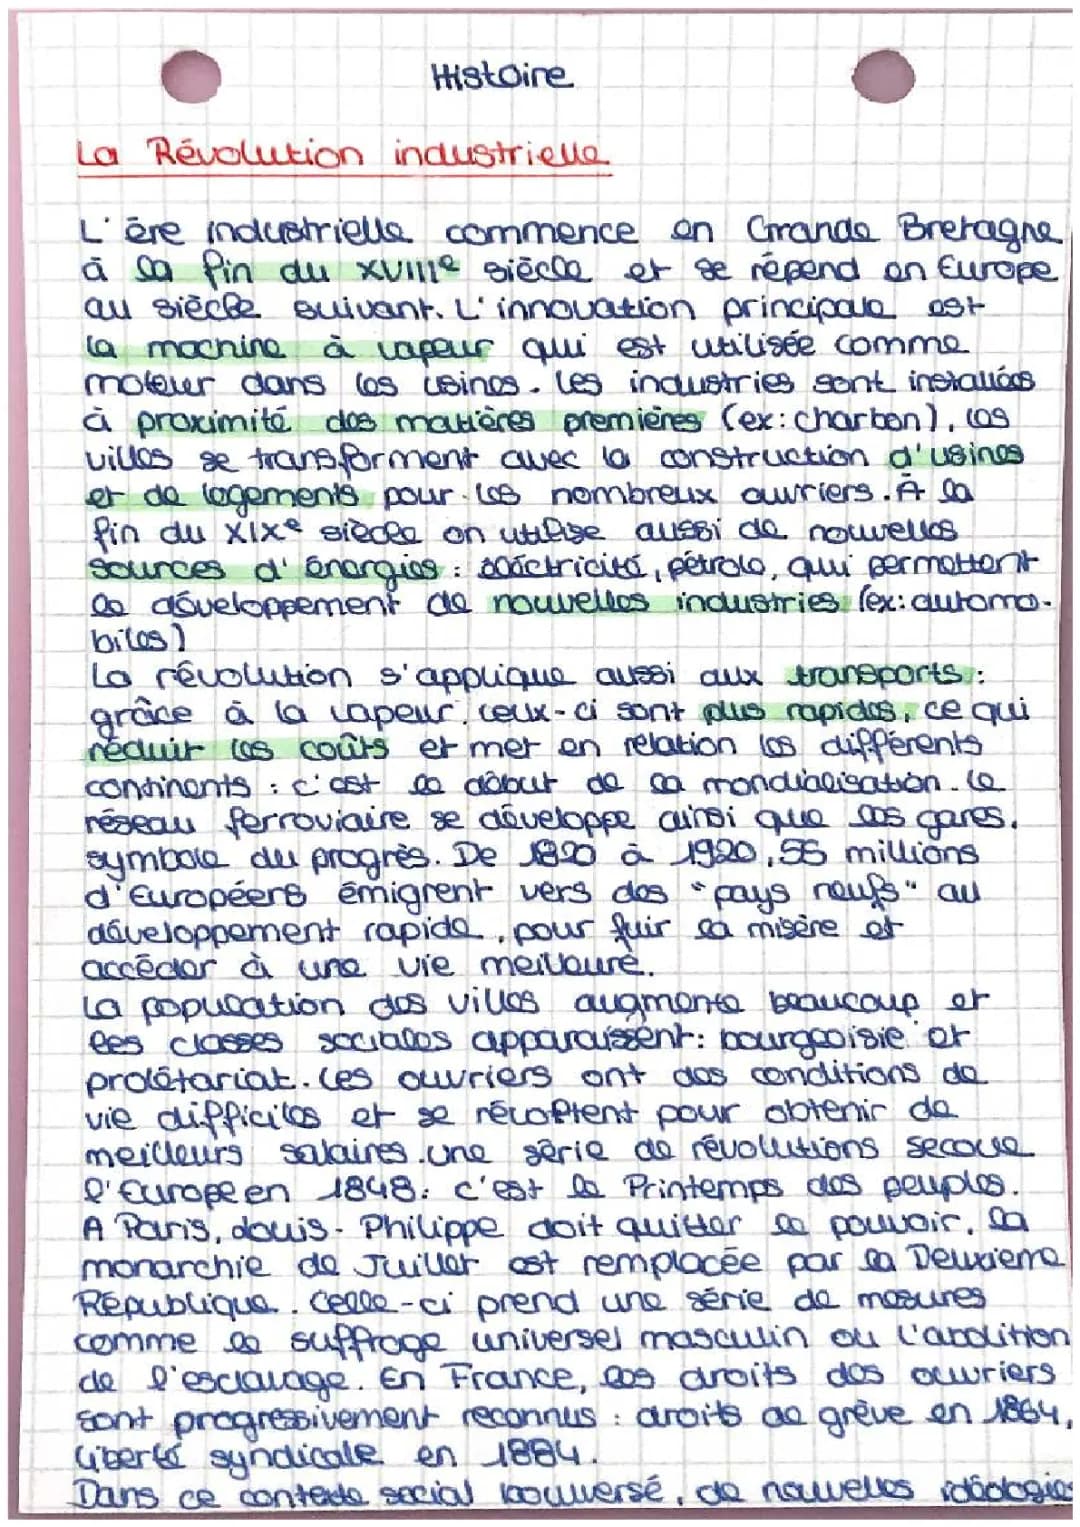 Histoire
La Révolution industrielle
L'ère industrielle commence en Grande Bretagne
à la fin du XVIIIe siècle et se répend en Europe
au siècle suivant. L'innovation principale est
la machine à vapeur qui est utilisée comme
moteur dans les usines. Les industries sont installées
à proximité des matières premières (ex: charbon), les
villes se transforment avec la construction d'usines
et de logements pour les nombreux ouvriers. À la
fin du XIXe siècle on utilise aussi de nouvelles
sources d'énergies : éléctricité, pétrole, qui permettent
le développement de nouvelles industries (ex: automo-
biles)
La révolution s'applique aussi aux transports :
grâce à la vapeur, ceux-ci sont plus rapides, ce qui
réduit les coûts et met en relation les différents
continents : c'est le début de la mondialisation. Le
réseau ferroviaire se développe ainsi que les gares,
symbole du progrès. De 1820 à 1920, 55 millions
d'Européens émigrent vers des "pays neufs" au
développement rapide, pour fuir la misère et
accéder à une vie meilleure.
La population des villes augmente beaucoup et
les classes sociales apparaissent : bourgeoisie et
prolétariat. Les ouvriers ont des conditions de
vie difficiles et se révoltent pour obtenir de
meilleurs salaires. Une série de révolutions secoue
l'Europe en 1848 : c'est le Printemps des peuples.
A Paris, Louis-Philippe doit quitter le pouvoir, la
monarchie de Juillet est remplacée par la Deuxième
République. Celle-ci prend une série de mesures
comme le suffrage universel masculin ou l'abolition
de l'esclavage. En France, les droits des ouvriers
sont progressivement reconnus : droits de grève en 1864,
liberté syndicale en 1884.
Dans ce contexte social bouleversé, de nouvelles idéologies